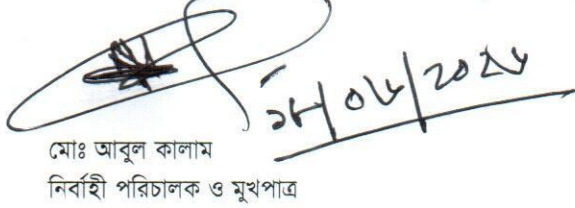 ১৮/০৬/২০২৬
মোঃ আবুল কালাম
নির্বাহী পরিচালক ও মুখপাত্র